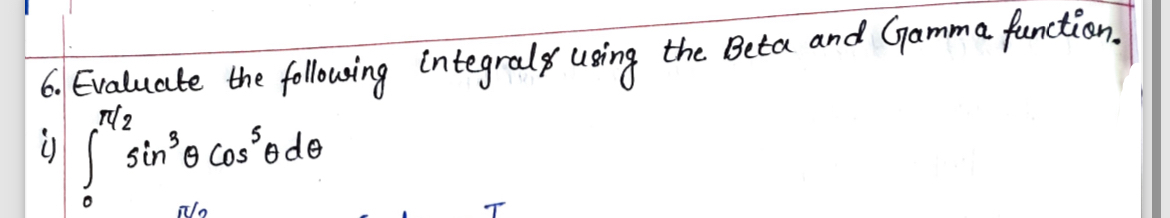 6. Evaluate the following integrals using the Beta and Gamma function.
i) ∫₀^π/2 sin³θ cos⁵θ dθ
π/2